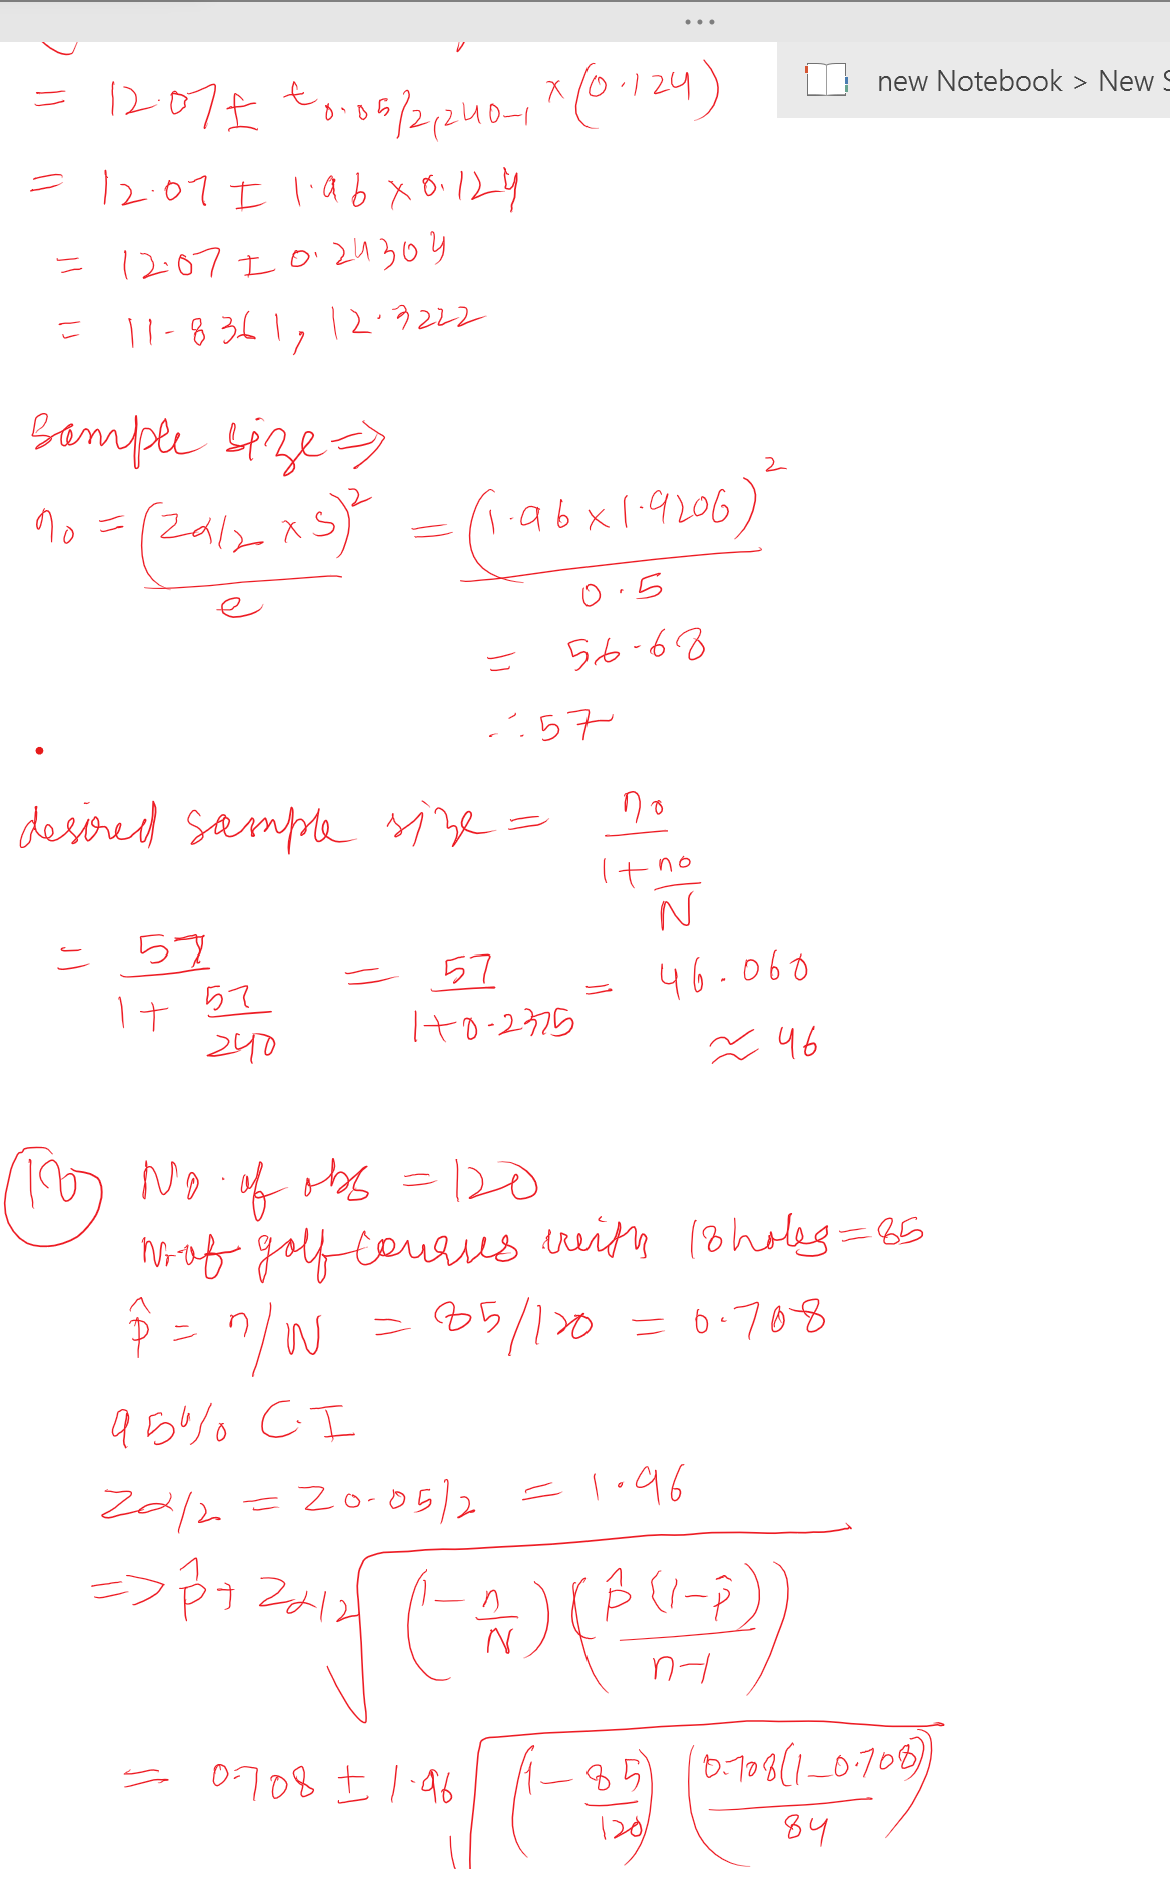 ...
new Notebook > New S
= 12.07 ± t0.05/2,240-1 × (0.124)
= 12.07 ± 1.96 × 0.124
= 12.07 ± 0.24304
= 11.8361, 12.3222
Sample size ⇒
n0 = (Zα/2 × S)² / e = (1.96 × 1.9206)² / 0.5
= 56.68
∴ 57
desired sample size = n0 / (1 + n0/N)
= 57 / (1 + 57/240) = 57 / (1+0.2375) = 46.060
≈ 46
No. of obs = 120
No. of golf courses with 18 holes = 85
p̂ = n/N = 85/120 = 0.708
95% C.I
Zα/2 = Z0.05/2 = 1.96
=> p̂ + Zα/2 √((1 - n/N) (p̂(1-p̂) / n-1))
= 0.708 ± 1.96 √((1 - 85/120) (0.708(1-0.708) / 84))